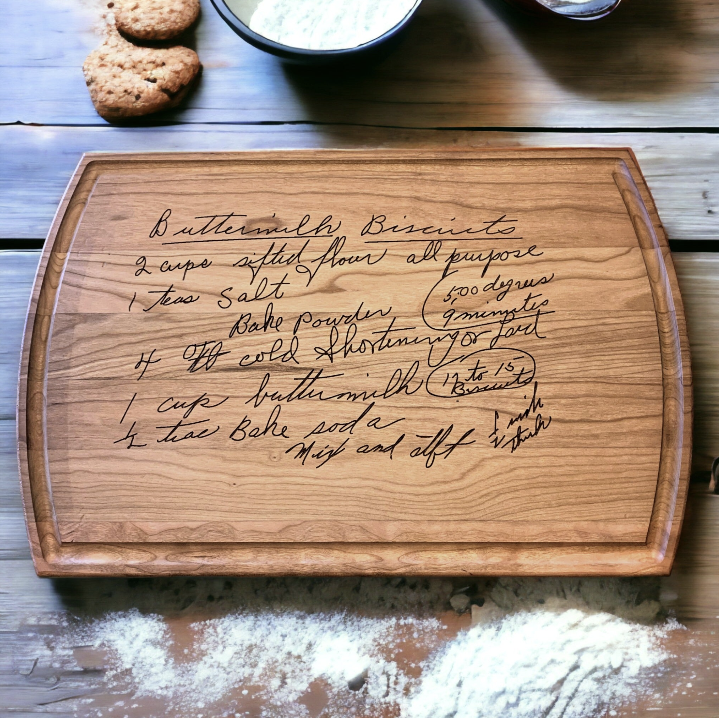 Buttermilk Biscuits
2 cups sifted flour all purpose
1 teas Salt
500 degrees
9 minutes
Bake Powder
4 cold Shortening or Lard
1 cup buttermilk
12 to 15
Biscuits
½ teas Bake soda
Mix and
½ inch
thick